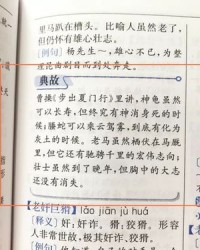 里马趴在槽头。比喻人虽然老了，
但仍怀有雄心壮志。
【例句】杨先生~，雄心不已，为整
理昆曲剧目而到处奔走。
典故
曹操《步出夏门行》里讲，神龟虽然
可以长寿，但终究有神消身死的
时候；螣蛇可以乘云驾雾，到底有化为
灰土的时候。老马虽然栖伏在马厩
里，但它还有驰骋千里的宏伟志向；
壮士虽然到了晚年，但胸中的大志
还没有消失。
【老奸巨猾】lǎo jiān jù huá
【释义】奸：奸诈。猾：狡猾。形容
人非常世故，极其奸诈、狡猾。